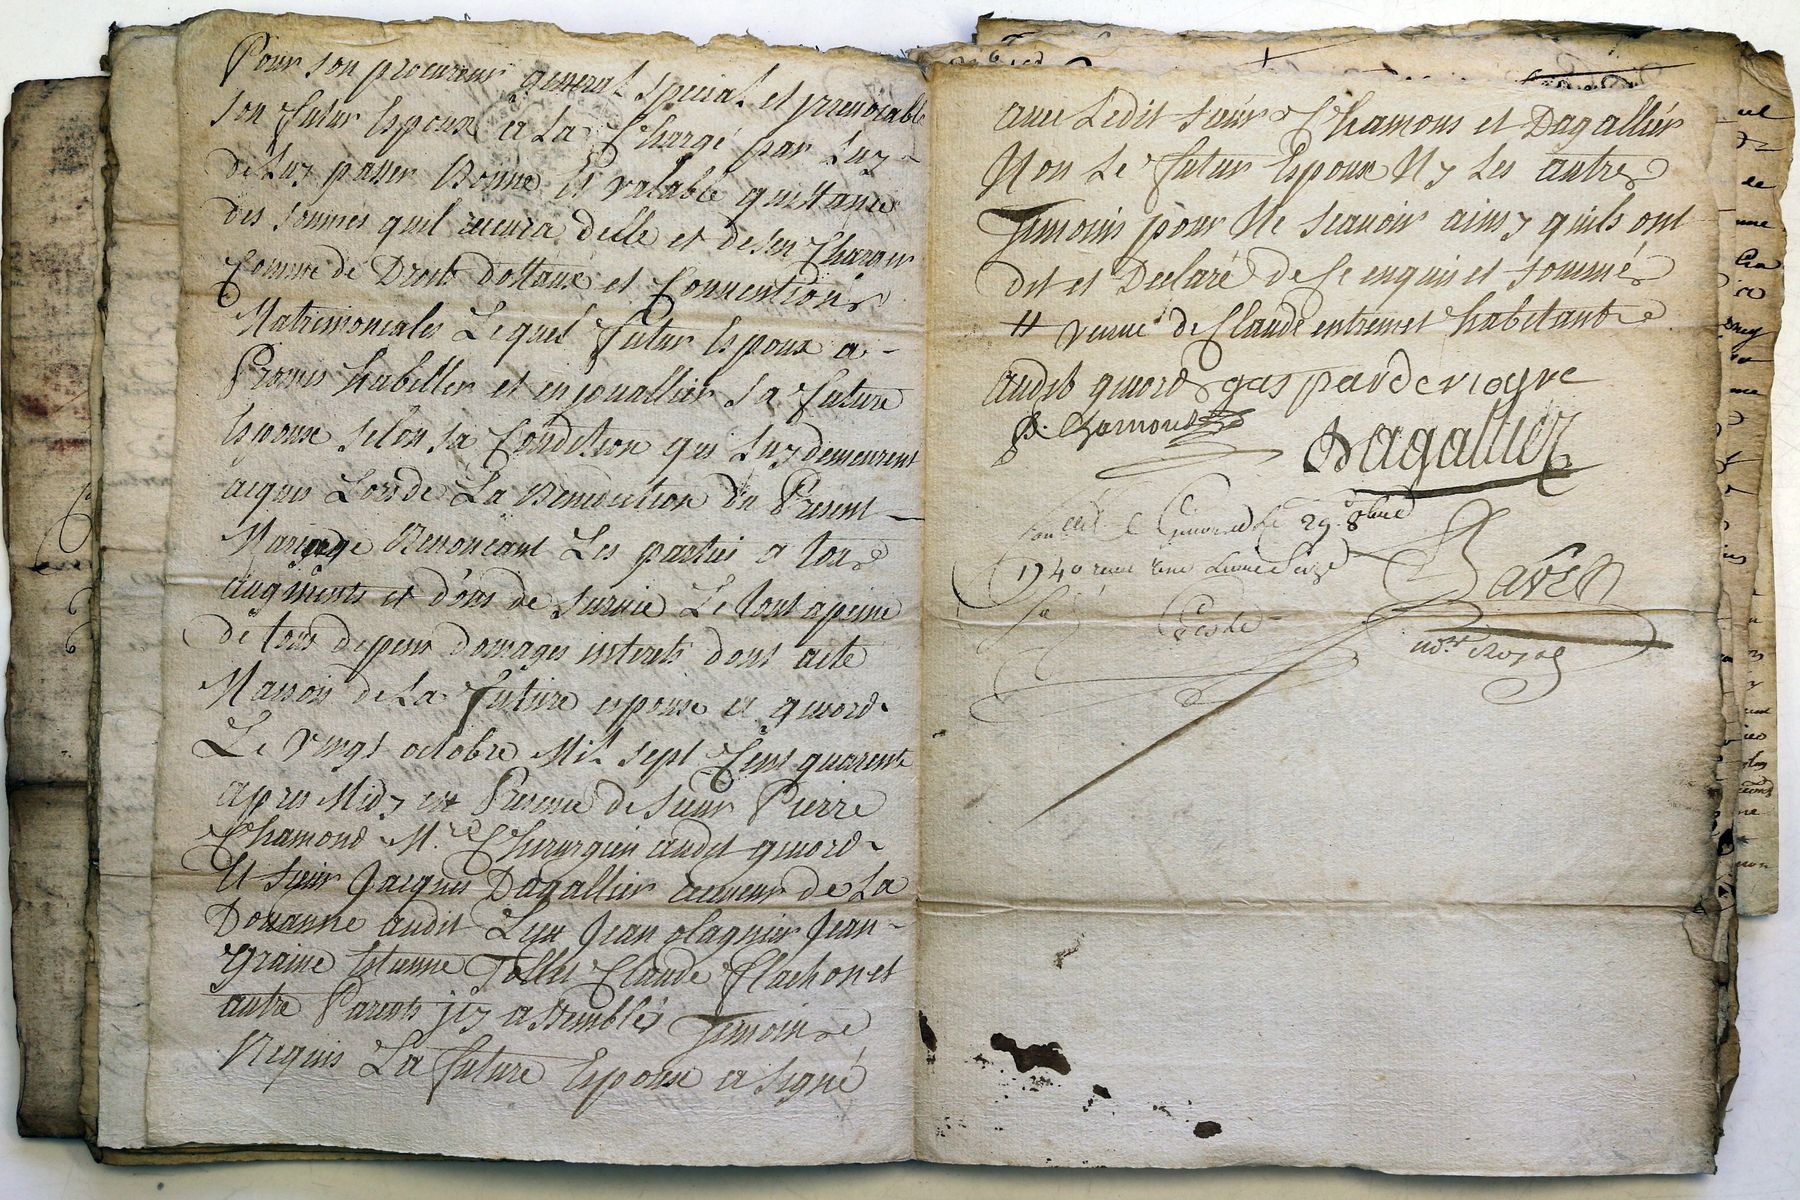 Pour son procureur general special et irrevocable
son futur Espoux a la Charge par luy
de luy passer Bonne Et valable quittance
des sommes quil recevra delle et desen Charger
Comme de Droits dottaux et Conventions
Matrimoniales Lequel futur Espoux a
Promis habiller et enjouallier sa future
Espouse selon sa Condition qui luy demeureront
acquis Lors de La Benediction du Present
Mariage Renonçant Les parties a tous
augments et dons de survie Le tout a peine
de tous depens domages interets dont acte
Maison de La future espouse a quiord
Le vingt octobre Mil sept Cent quarente
apres Midy en Presence de sieur Pierre
Chamond Mre Chirurgien audit quiord
Et sieur Jacques Dagallier receveur de La
Douanne audit Lieu Jean olagnier Jean
graine Estienne Tollet Claude Clachon et
autre Parents icy assemblés Temoins
Requis La future Espouse a signé
avec Ledit sieurs Chamons et Dagallier
Non Le futur Espoux Ny Les autres
Temoins pour Ne scavoir ainsy quils ont
dit et Declaré de Ce enquis et sommés
# veuve de Claude entremet habitante
audit quiord gaspardeviogne
P. Chamond
Dagallier
Con.lle a le 29. 8bre
1740 recu une Livre
Baven
not. Royal